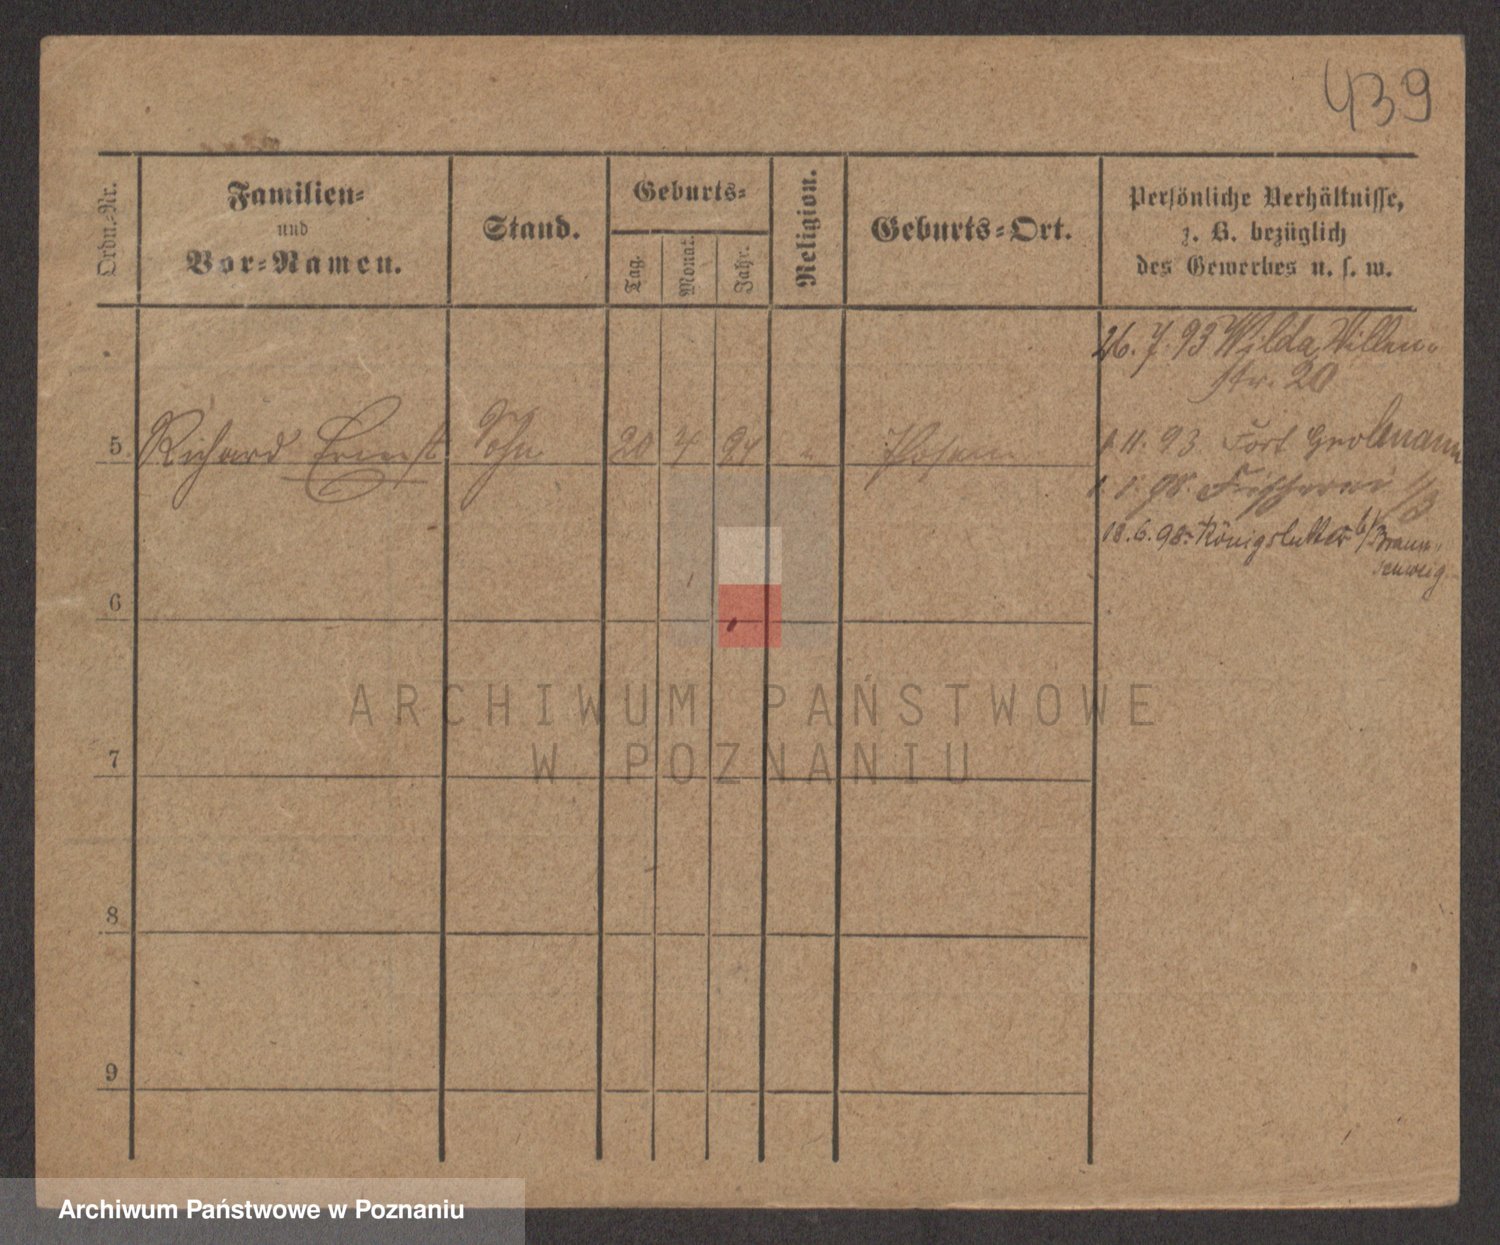 439
Ordn.-Nr.
Familien-
und
Vor-Namen.
Stand.
Geburts-
Tag.
Monat.
Jahr.
Religion.
Geburts-Ort.
Persönliche Verhältnisse,
z. B. bezüglich
des Gewerbes u. s. w.
26. 7. 93 Wilda, Villen-
str. 20
5 Richard Ernst Sohn 20 4 94 " Posen
11. 93 Fort Grolmann
98. Fischerei
18. 6. 98. Königslutter b/Braun-
schweig
6
7
8
9
ARCHIWUM PAŃSTWOWE
W POZNANIU
Archiwum Państwowe w Poznaniu